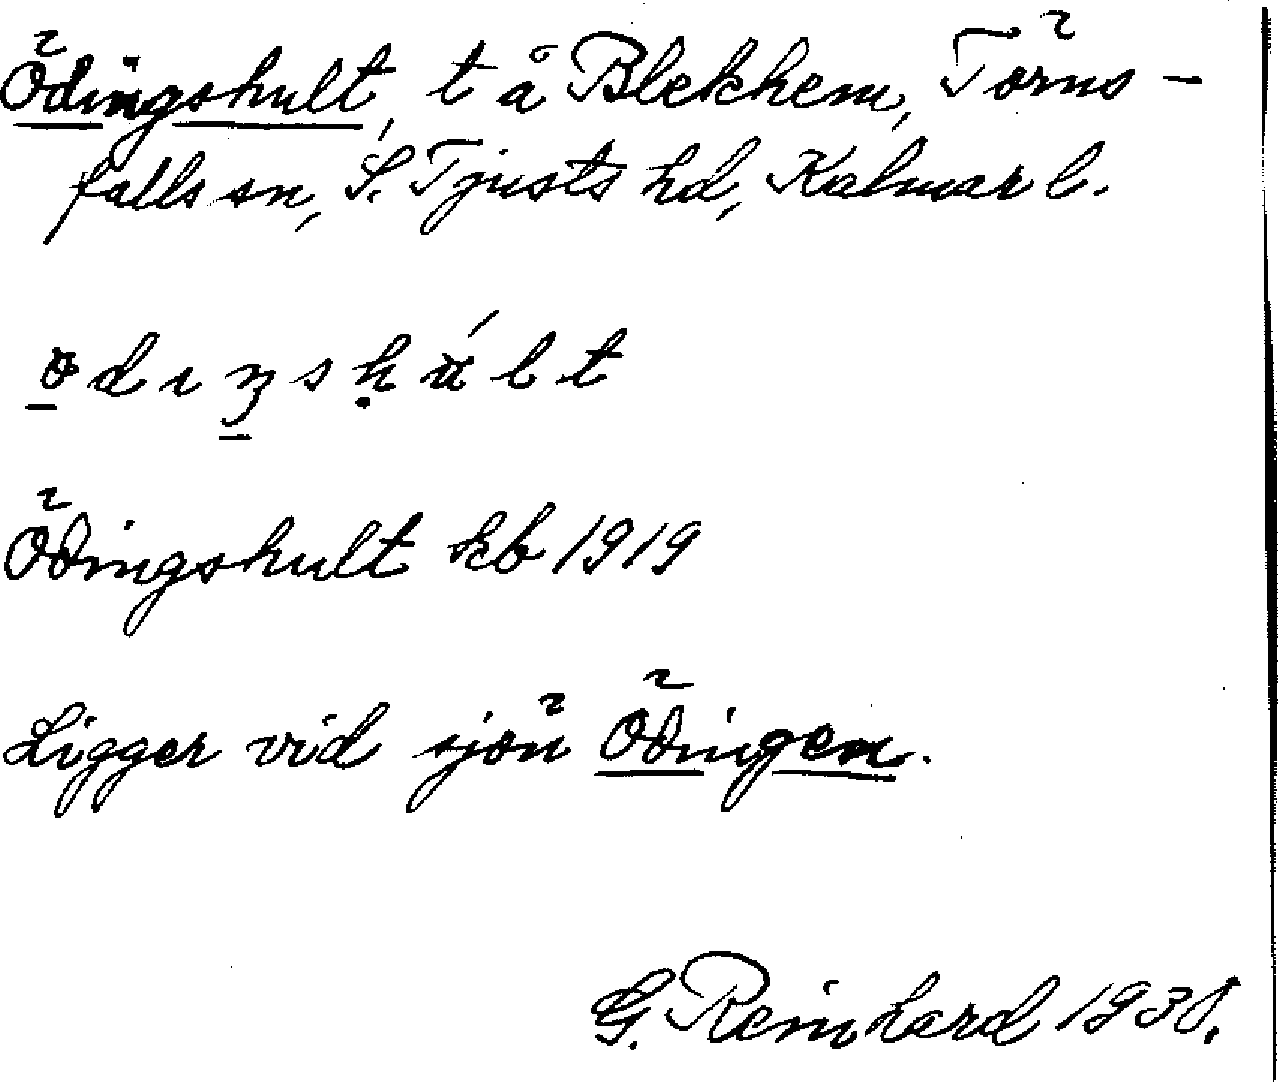 Ödingshult, t å Blekhem, Törns-
falls sn, S. Tjusts hd, Kalmar l.
ödıŋshúlt
Ödingshult kb 1919
Ligger vid sjön Ödingen.
G. Reinhard 1938.